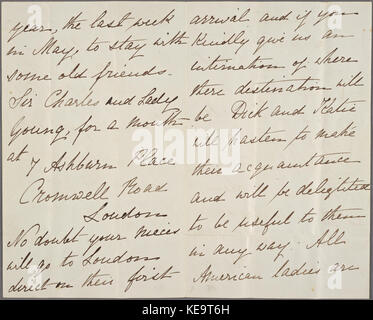 year, the last week
in May, to stay with
some old friends.
Sir Charles and Lady
Young, for a month
at 7 Ashburn Place
Cromwell Road
London
No doubt your nieces
will go to London
direct on their first
arrival and if you
Kindly give us an
intimation of where
there destination will
be Dick and Katie
will hasten to make
their acquaintance
and will be delegited
to be useful to them
in any way. All
American ladies are
a
alamy
Image ID: KE9T6H
www.alamy.com